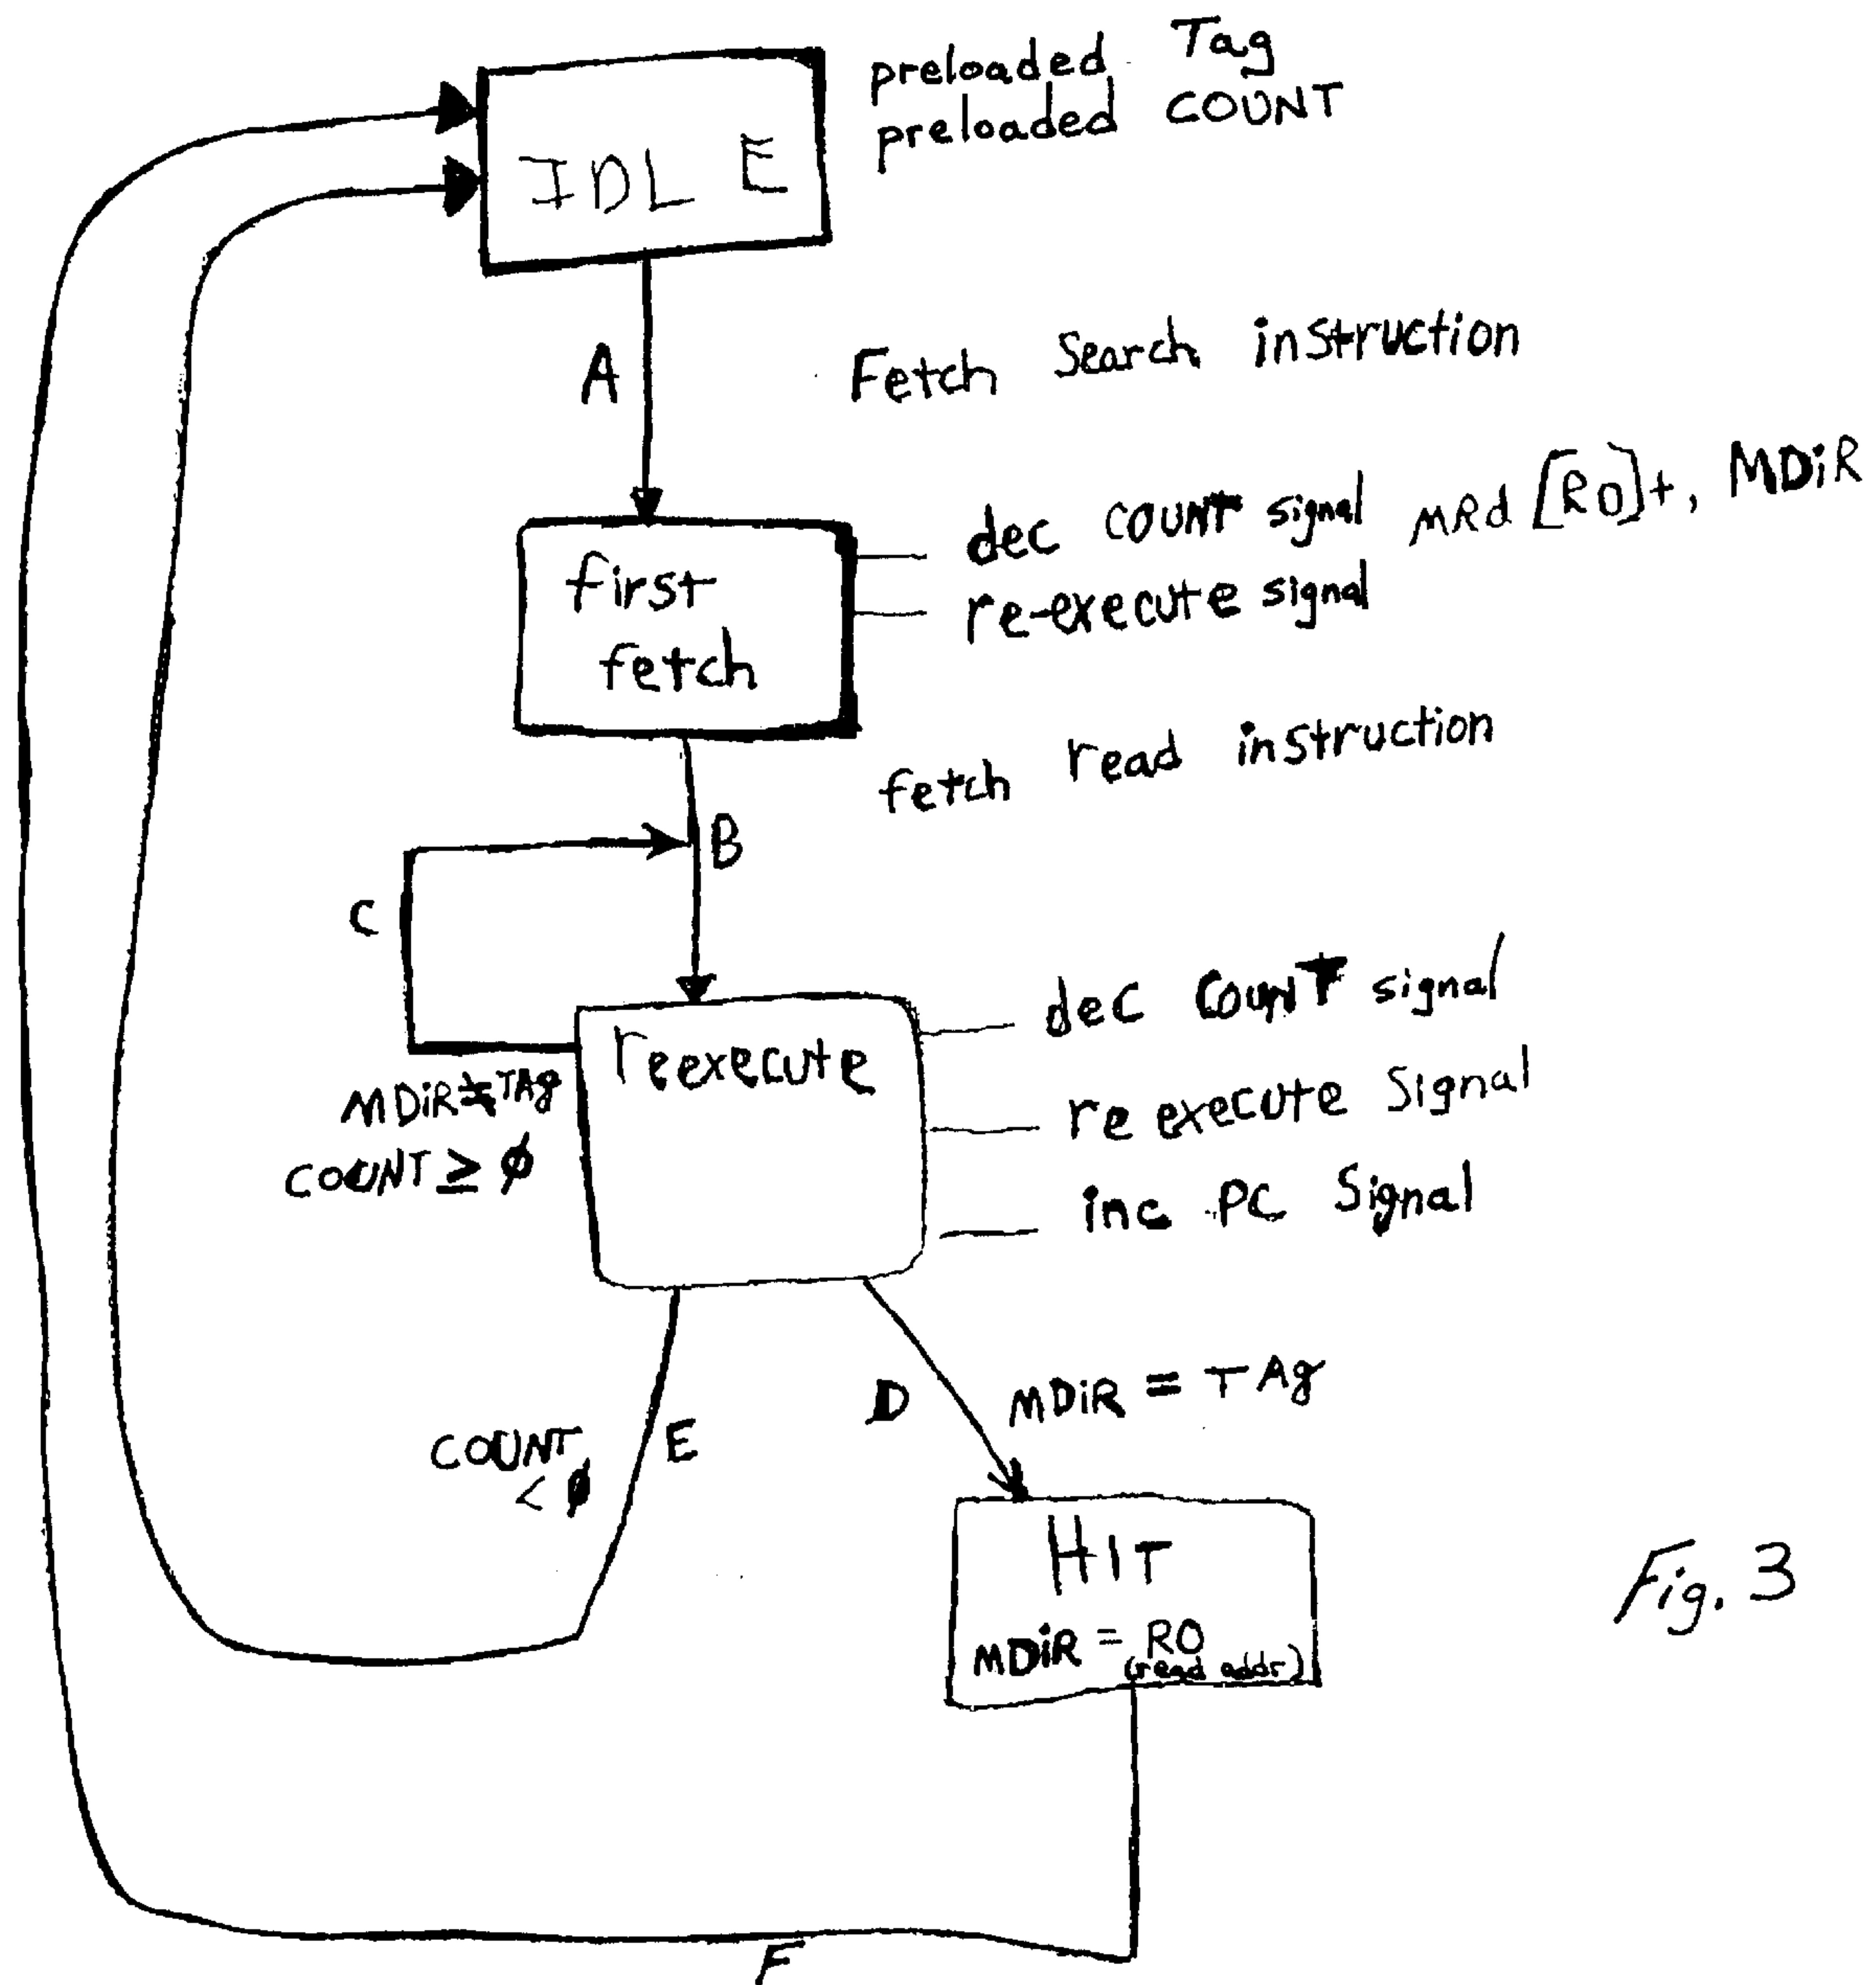 preloaded Tag
preloaded COUNT
IDLE
A
Fetch Search instruction
first
fetch
dec COUNT signal MRd [R0]+, MDiR
re-execute signal
fetch read instruction
B
C
reexecute
dec COUNT signal
re execute Signal
inc PC Signal
MDiR ≠ TAg
COUNT ≥ φ
D
MDiR = TAg
COUNT
< φ
E
HIT
MDiR = RO
(read addr)
Fig. 3
F